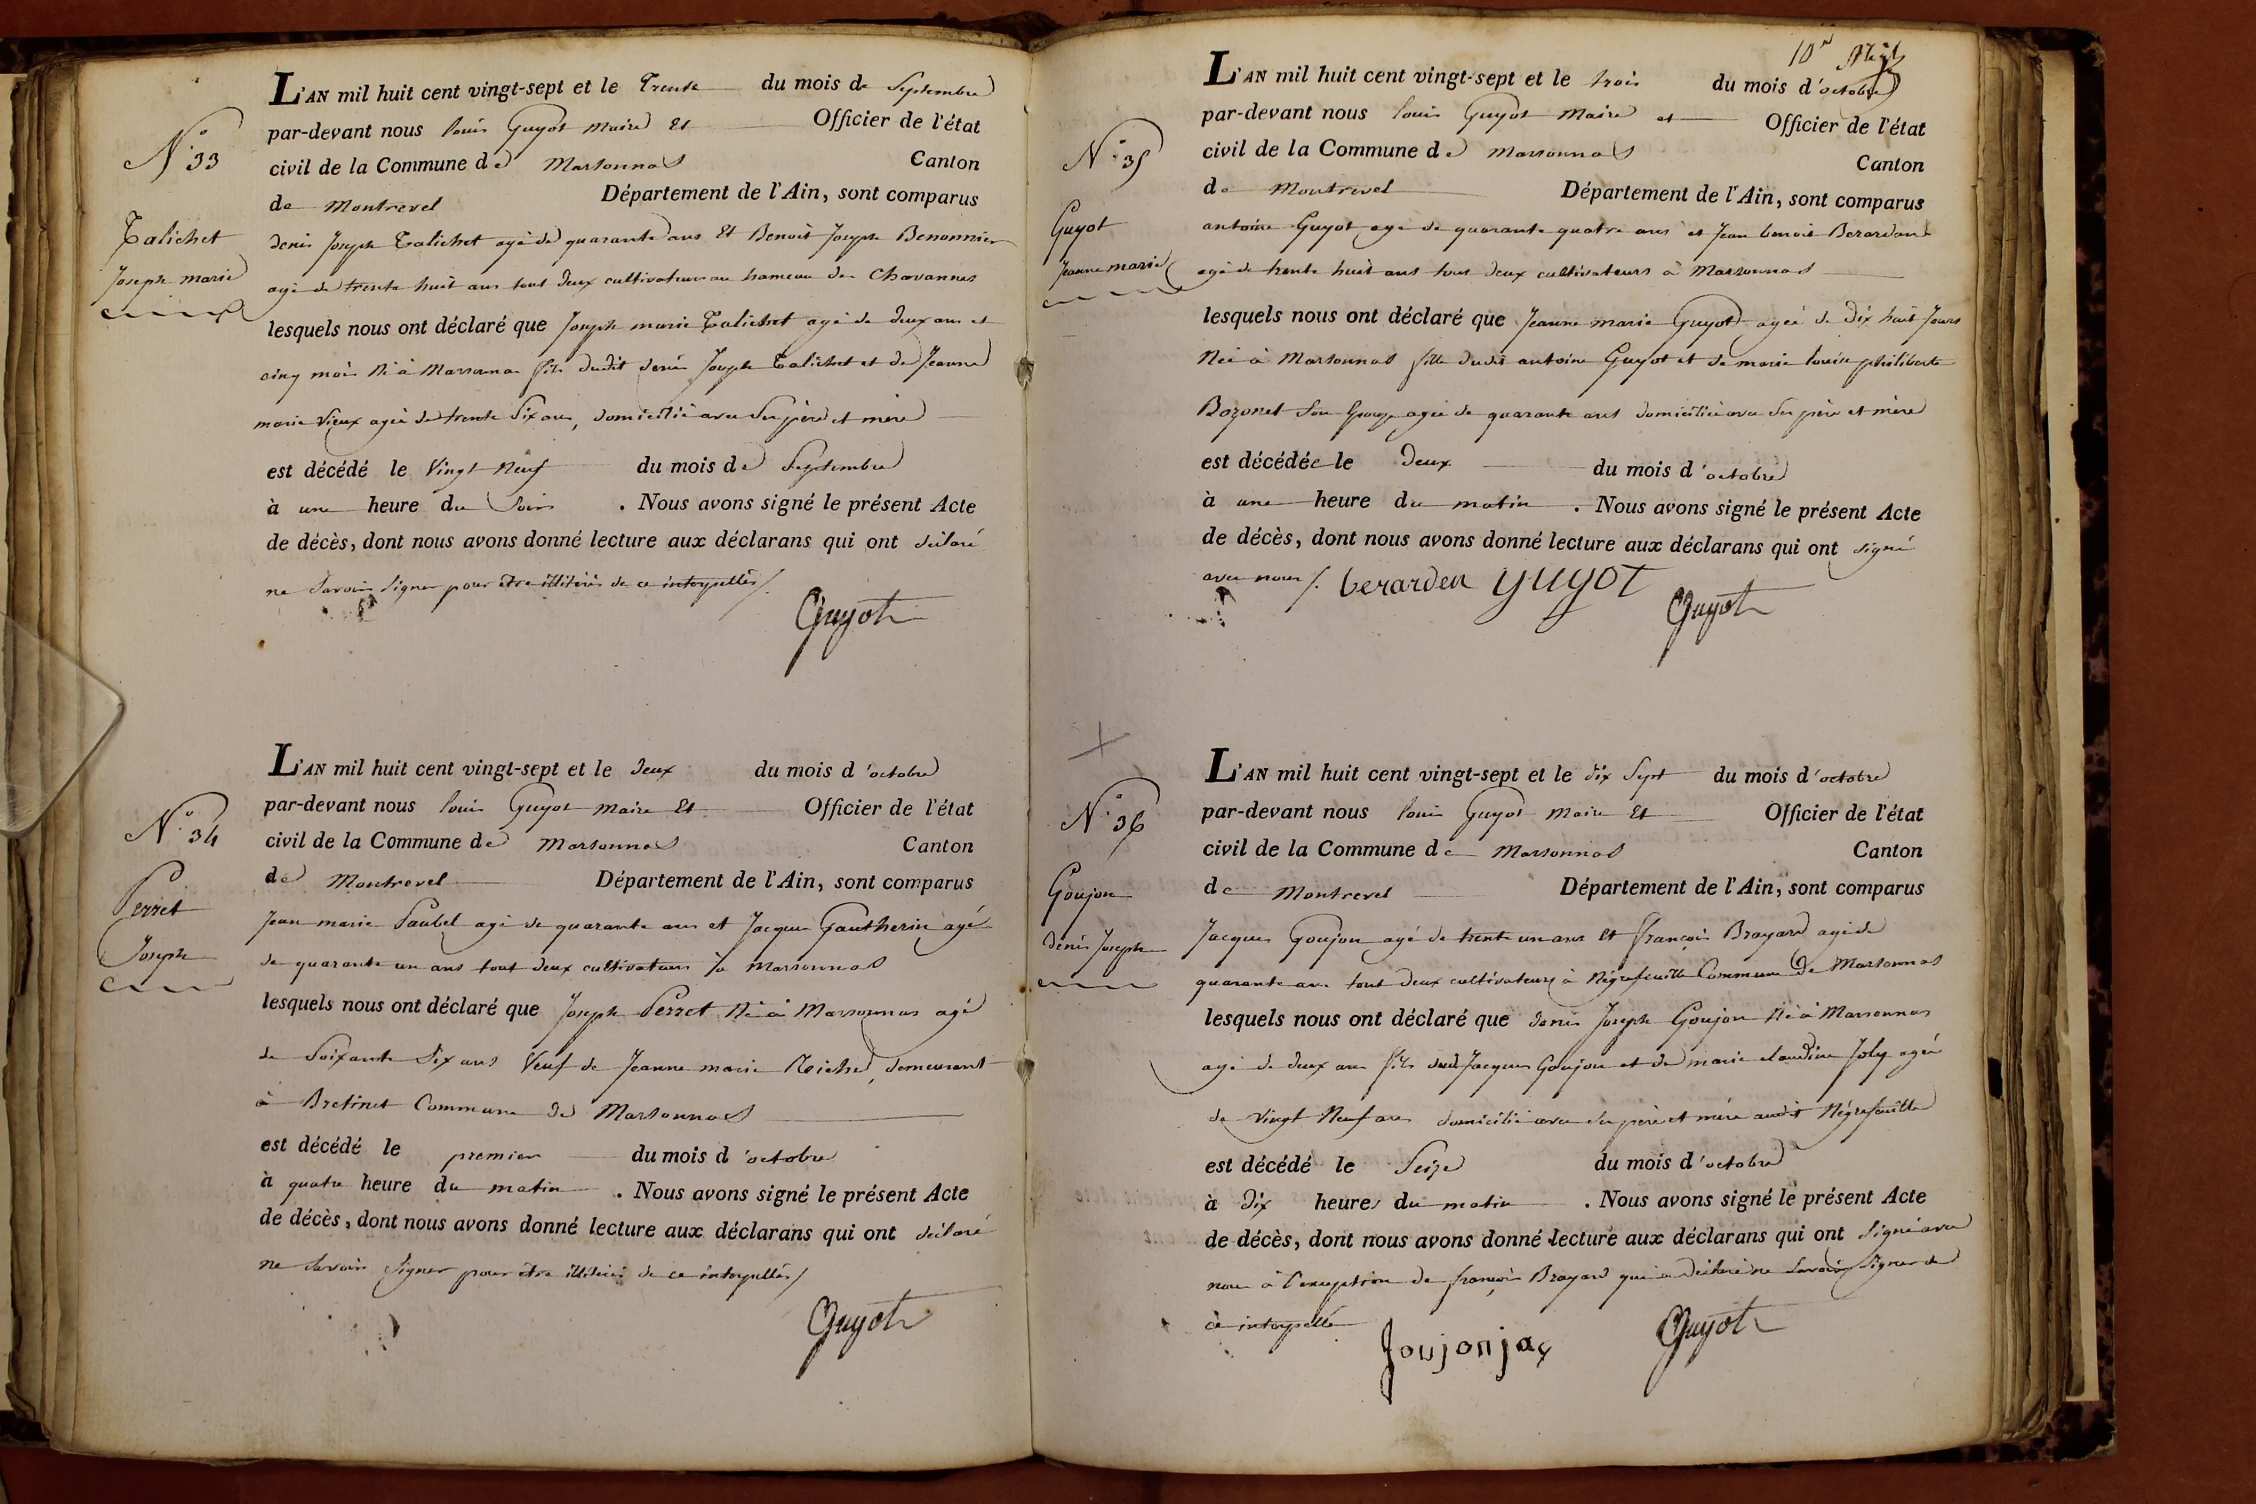 N.° 33
Talichet
Joseph marie
L'AN mil huit cent vingt-sept et le Trente du mois de Septembre
par-devant nous louis Guyot Maire Et Officier de l'état
civil de la Commune de Marsonnas Canton
de Montrevel Département de l'Ain, sont comparus
denis Joseph Talichet agé de quarante ans Et Benoit Joseph Benonnier
agé de trente huit ans tout deux cultivateurs au hameau de Chavannes
lesquels nous ont déclaré que Joseph marie Talichet agé de deux ans et
cinq mois Né à Marsonnas fils dudit denis Joseph Talichet et de Jeanne
marie Vieux agée de trente Six ans, domicilié avec Ses père et mère
est décédé le Vingt Neuf du mois de Septembre
à une heure du Soir . Nous avons signé le présent Acte
de décès, dont nous avons donné lecture aux déclarans qui ont déclaré
ne Savoir Signer pour être illitérés de ce interpellés /.
Guyot
N.° 34
Perret
Joseph
L'AN mil huit cent vingt-sept et le deux du mois d'octobre
par-devant nous louis Guyot Maire Et Officier de l'état
civil de la Commune de Marsonnas Canton
de Montrevel Département de l'Ain, sont comparus
Jean marie Paubel agé de quarante ans et Jacques Gautherin agé
de quarante un ans tout deux cultivateurs à Marsonnas
lesquels nous ont déclaré que Joseph Perret Né à Marsonnas agé
de Soixante Six ans Veuf de Jeanne marie demeurant
à Bretinet Commune de Marsonnas
est décédé le premier du mois d'octobre
à quatre heure du matin . Nous avons signé le présent Acte
de décès, dont nous avons donné lecture aux déclarans qui ont déclaré
ne Savoir Signer pour être illitérés de ce interpellés /
Guyot
10e
N.° 35
Guyot
Jeanne marie
L'AN mil huit cent vingt-sept et le trois du mois d'octobre
par-devant nous louis Guyot Maire et Officier de l'état
civil de la Commune de Marsonnas Canton
de Montrevel Département de l'Ain, sont comparus
antoine Guyot agé de quarante quatre ans et Jean benoit Berardan
agé de trente huit ans tous deux cultivateurs à Marsonnas
lesquels nous ont déclaré que Jeanne marie Guyot agée de Dix huit Jours
Née à Marsonnas fille dudit antoine Guyot et de marie louise philiberte
Bozonet Son Epouse agée de quarante ans domiciliée avec Ses père et mère
est décédée le Deux du mois d'octobre
à une heure du matin . Nous avons signé le présent Acte
de décès, dont nous avons donné lecture aux déclarans qui ont signé
avec nous /. berarden GUYOT
Guyot
N.° 36
Goujon
denis Joseph
L'AN mil huit cent vingt-sept et le dix Sept du mois d'octobre
par-devant nous louis Guyot Maire Et Officier de l'état
civil de la Commune de Marsonnas Canton
de Montrevel Département de l'Ain, sont comparus
Jacques Goujon agé de trente un ans Et françois Brayard agé de
quarante ans tout deux cultivateurs à Négrefeuille Commune de Marsonnas
lesquels nous ont déclaré que denis Joseph Goujon Né à Marsonnas
agé de deux ans fils dud Jacques Goujon et de marie claudine Joly agée
de Vingt Neuf ans domicilié avec Ses père et mère audit Négrefeuille
est décédé le Seize du mois d'octobre
à Dix heures du matin . Nous avons signé le présent Acte
de décès, dont nous avons donné lecture aux déclarans qui ont Signé avec
nous à l'exception de françois Brayard qui a déclaré ne Savoir Signer de
ce interpellé
Joujon jaq
Guyot